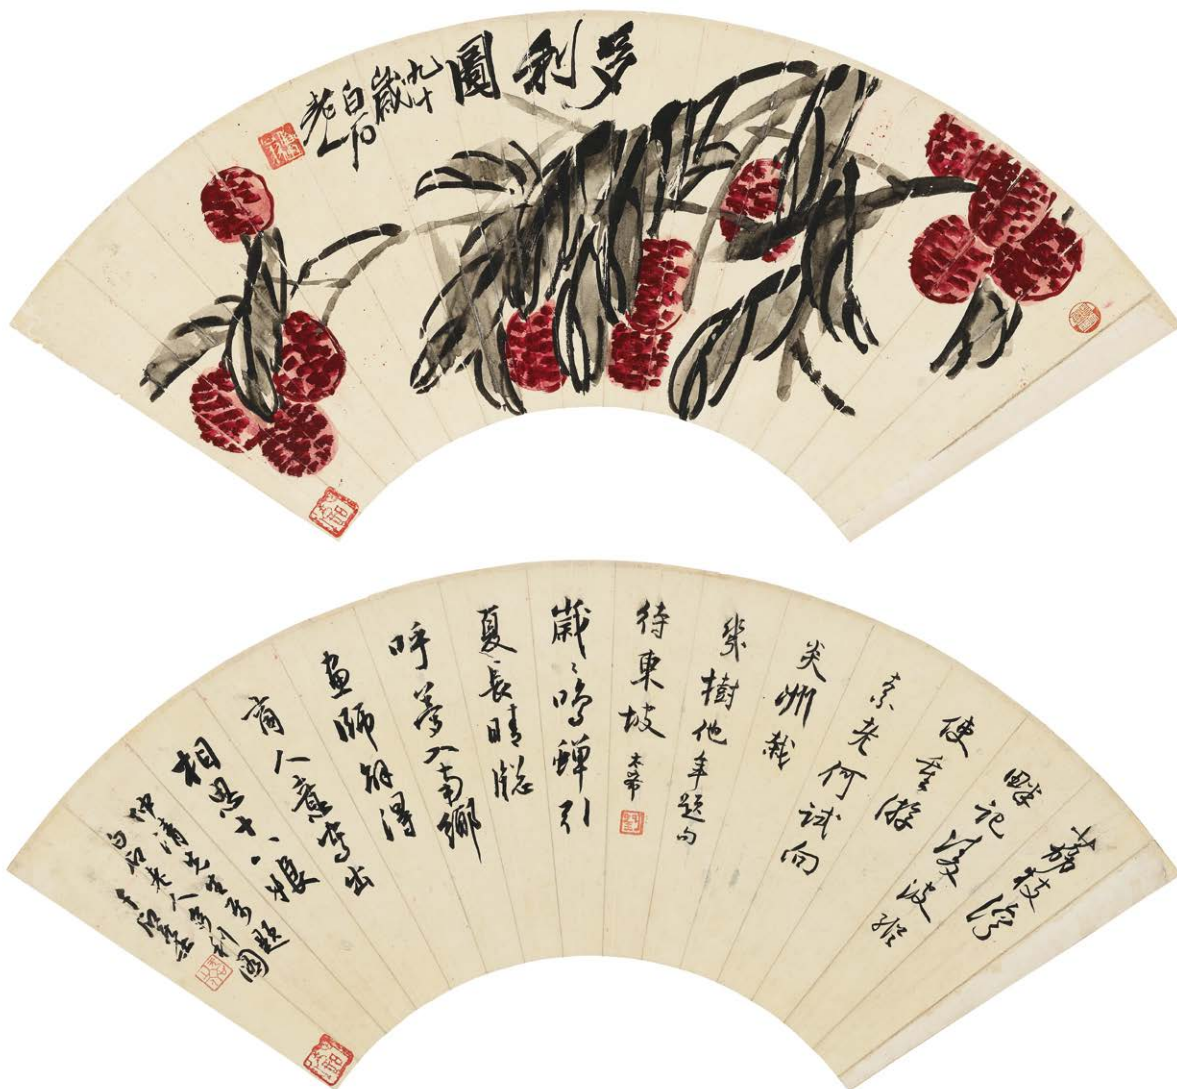 多利圖
九十
歲
白石
老人
荔枝灣
畔記凌波縱
使重游
奈老何試向
炎洲栽
幾樹他年題句
待東坡
歲〻鳴蟬引
夏長晴牕
呼夢入南鄉
畫師解得
商人意寫出
相思十八娘
先生屬題
白石老人多利圖